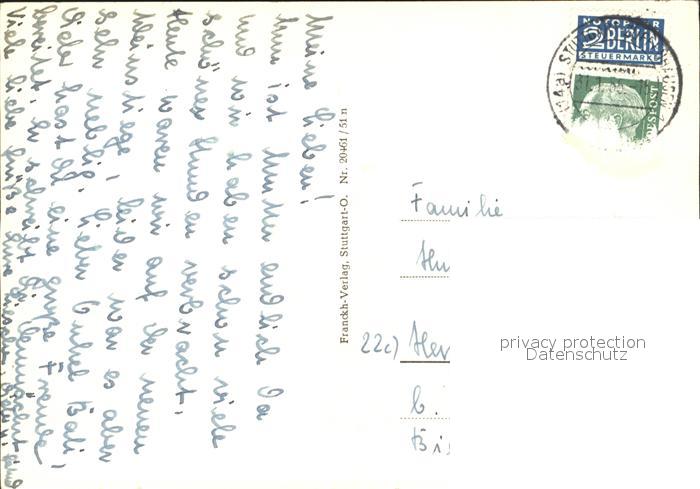 Meine Lieben!
Nun ist Mutter endlich da
und wir haben schon viele
schöne Stunden verbracht.
Heute waren wir auf der neuen
Weinsteige, leider war es aber
sehr neblig. Lieber Onkel Kali,
Dieter hast Du eine große Freude
bereitet, er schreibt Dir demnächst
Viele liebe Grüße
Franckh-Verlag, Stuttgart-O. Nr. 20461/51 n
NOTOPFER
2 BERLIN
STEUERMARKE
(14a) ST
DESPOST
Familie
Hu
22c) Her
b.
Bis
privacy protection
Datenschutz